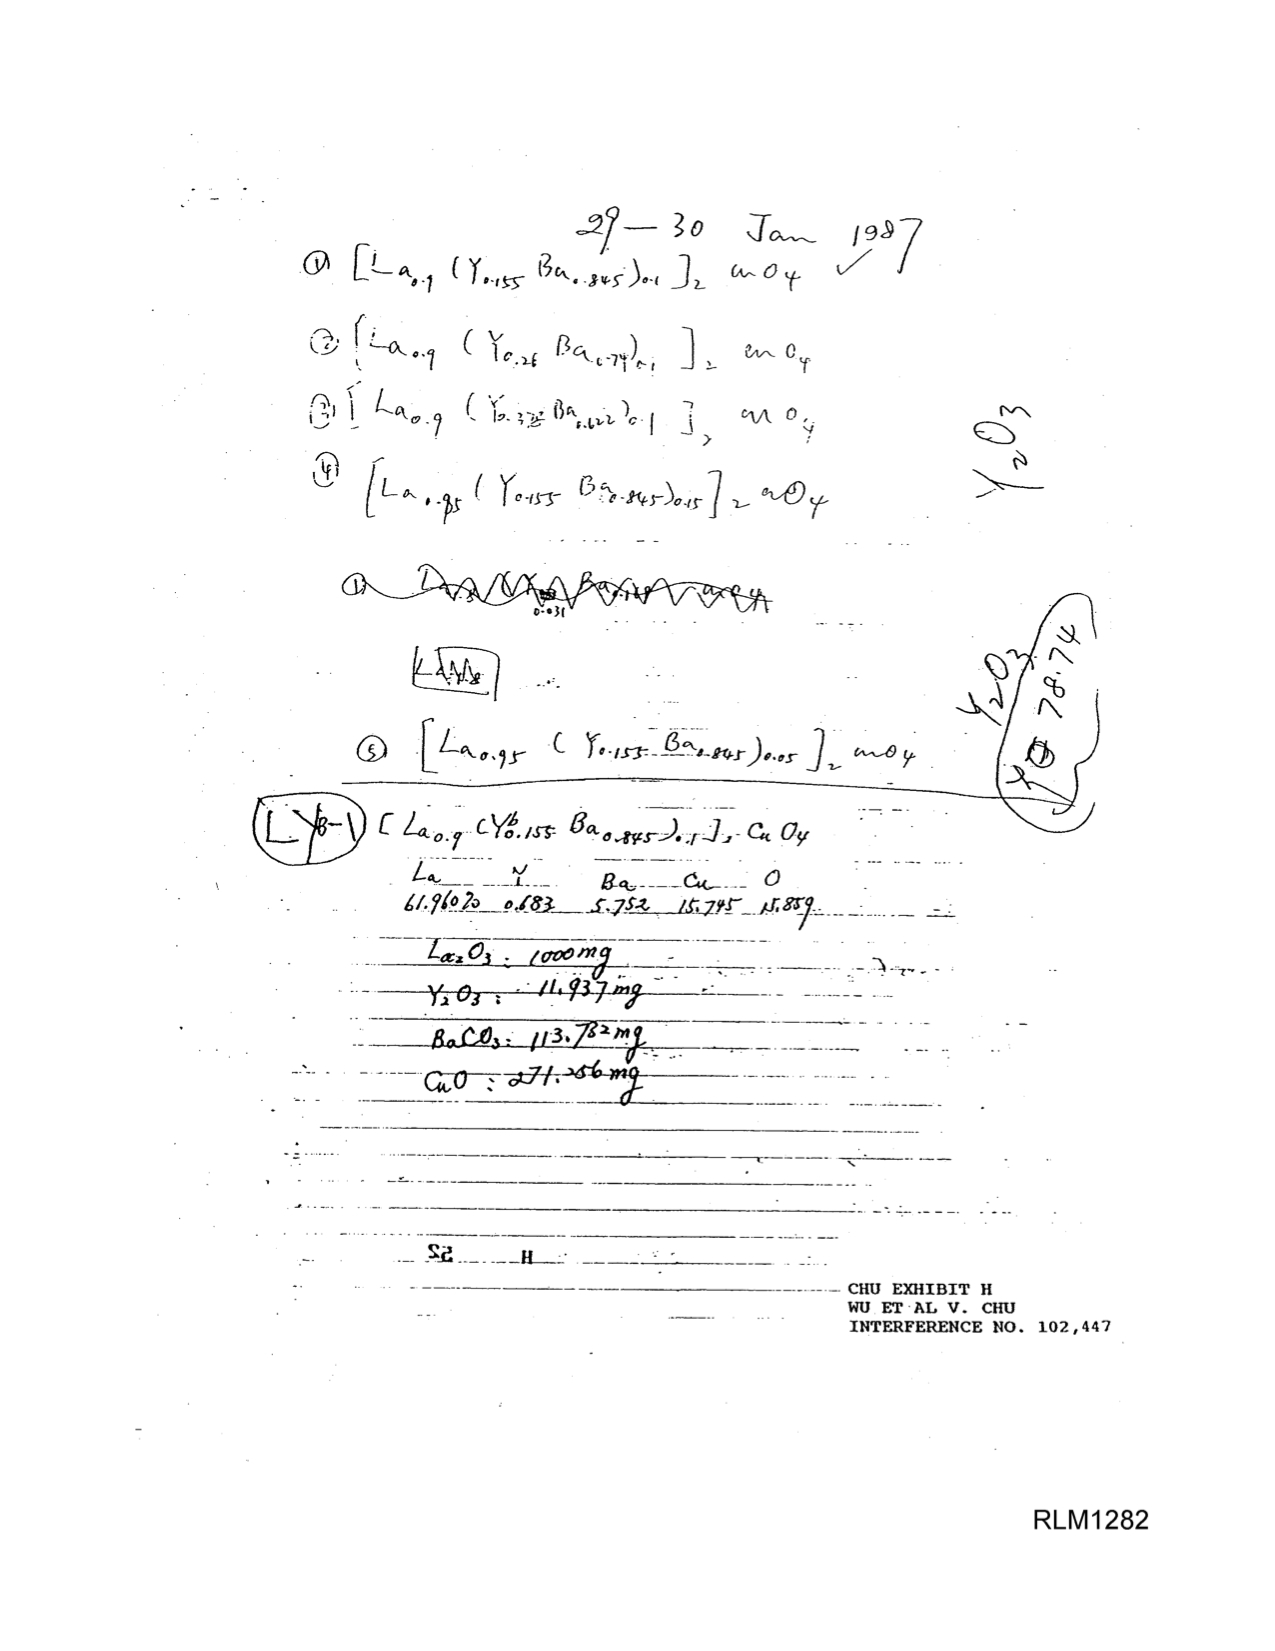 29 — 30 Jan 1987
① [La0.9 (Y0.155 Ba0.845)0.1]2 CuO4 ✓
② [La0.9 (Y0.26 Ba0.74)0.1]2 CuO4
③ [La0.9 (Ba0.622)0.1]2 CuO4
Y2O3
④ [La0.85 (Y0.155 Ba0.845)0.15]2 CuO4
①
0.031
Y2O3
78.74
⑤ [La0.95 (Y0.155 Ba0.845)0.05]2 CuO4
LYB-1 [La0.9 (Yb0.155 Ba0.845)0.1]2 CuO4
La Y Ba Cu O
61.960% 0.683 5.752 15.745 15.859
La2O3: 1000mg
Y2O3: 11.937mg
BaCO3: 113.782mg
CuO: 271.256mg
52 H
CHU EXHIBIT H
WU ET AL V. CHU
INTERFERENCE NO. 102,447
RLM1282